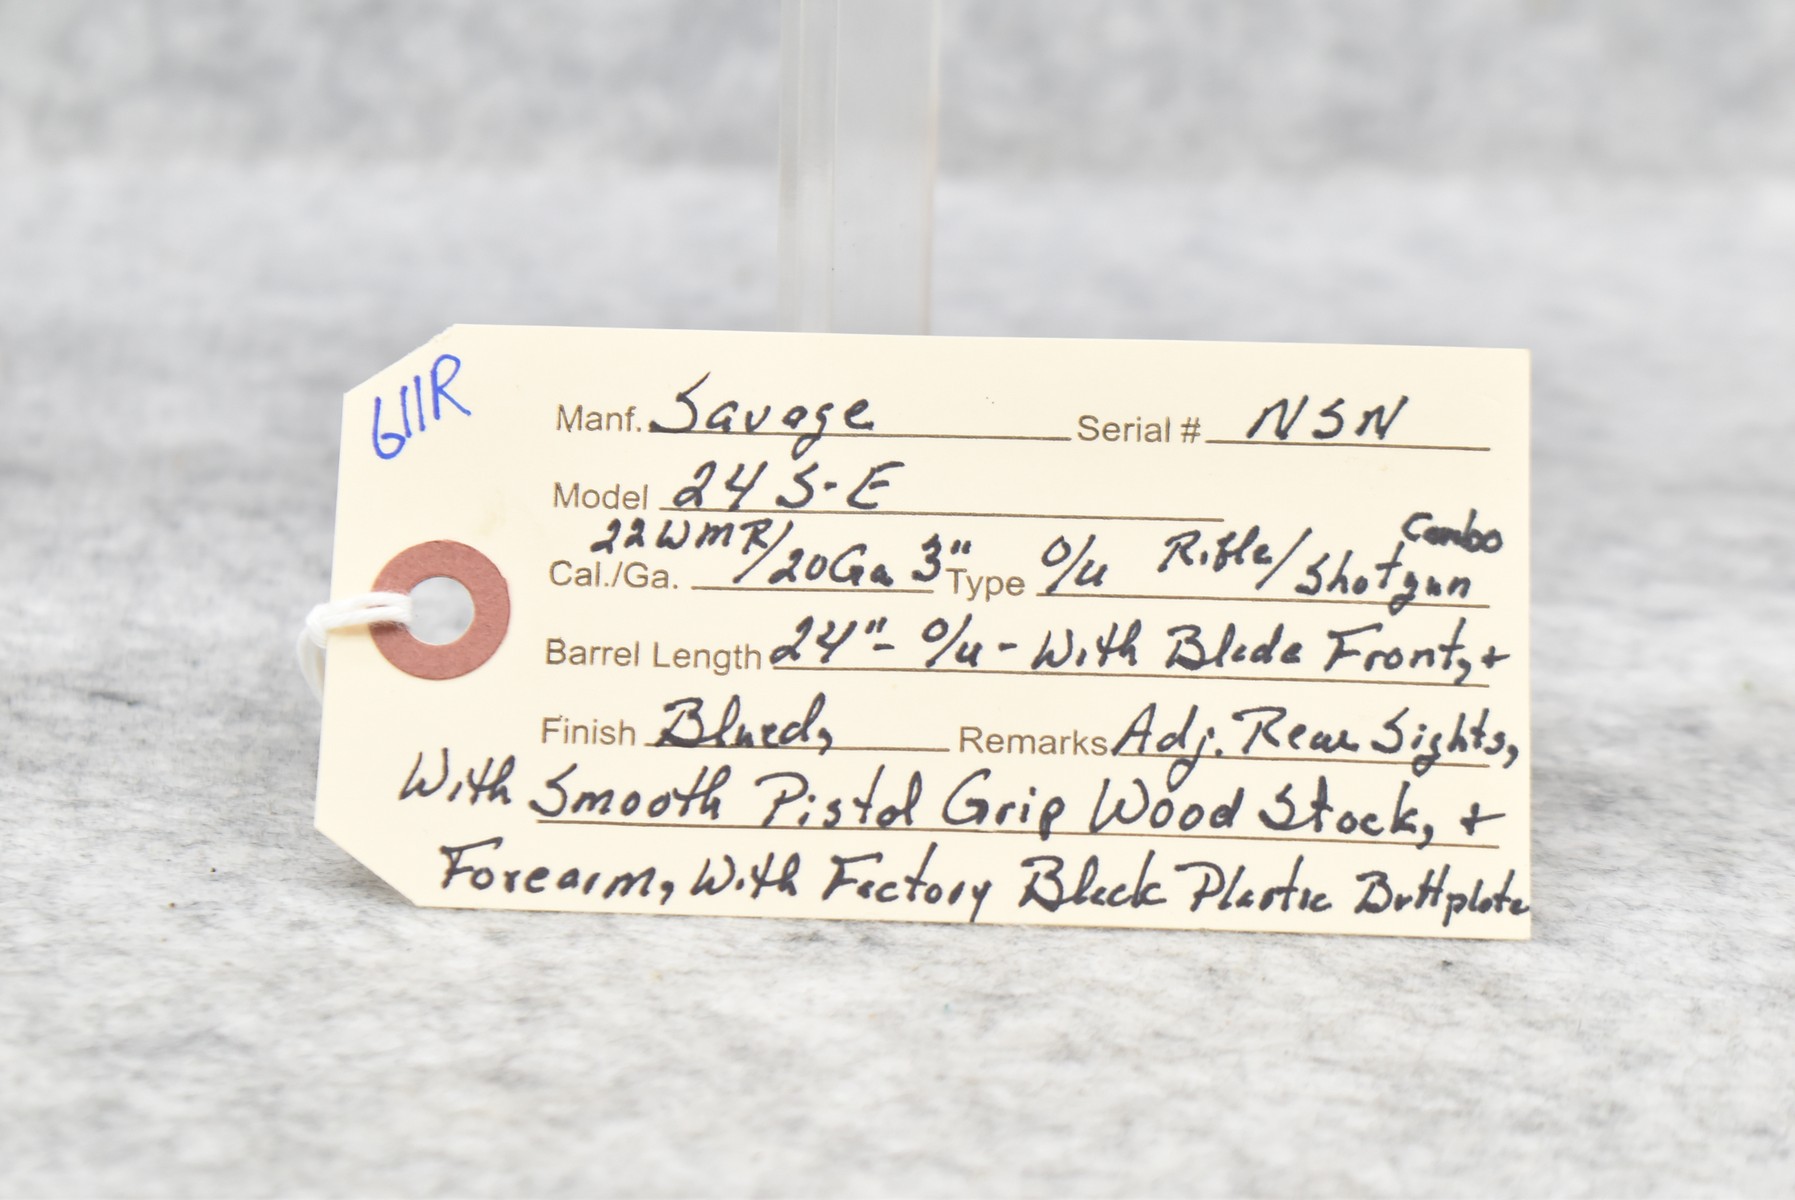 611R
Manf. Savage Serial # NSN
Model 24 S-E
Cal./Ga. 22WMR/20Ga 3" Type O/u Rifle/Shotgun Combo
Barrel Length 24" - O/u - With Blade Front, +
Finish Blued, Remarks Adj. Rear Sights,
With Smooth Pistol Grip Wood Stock, +
Forearm, With Factory Black Plastic Buttplate